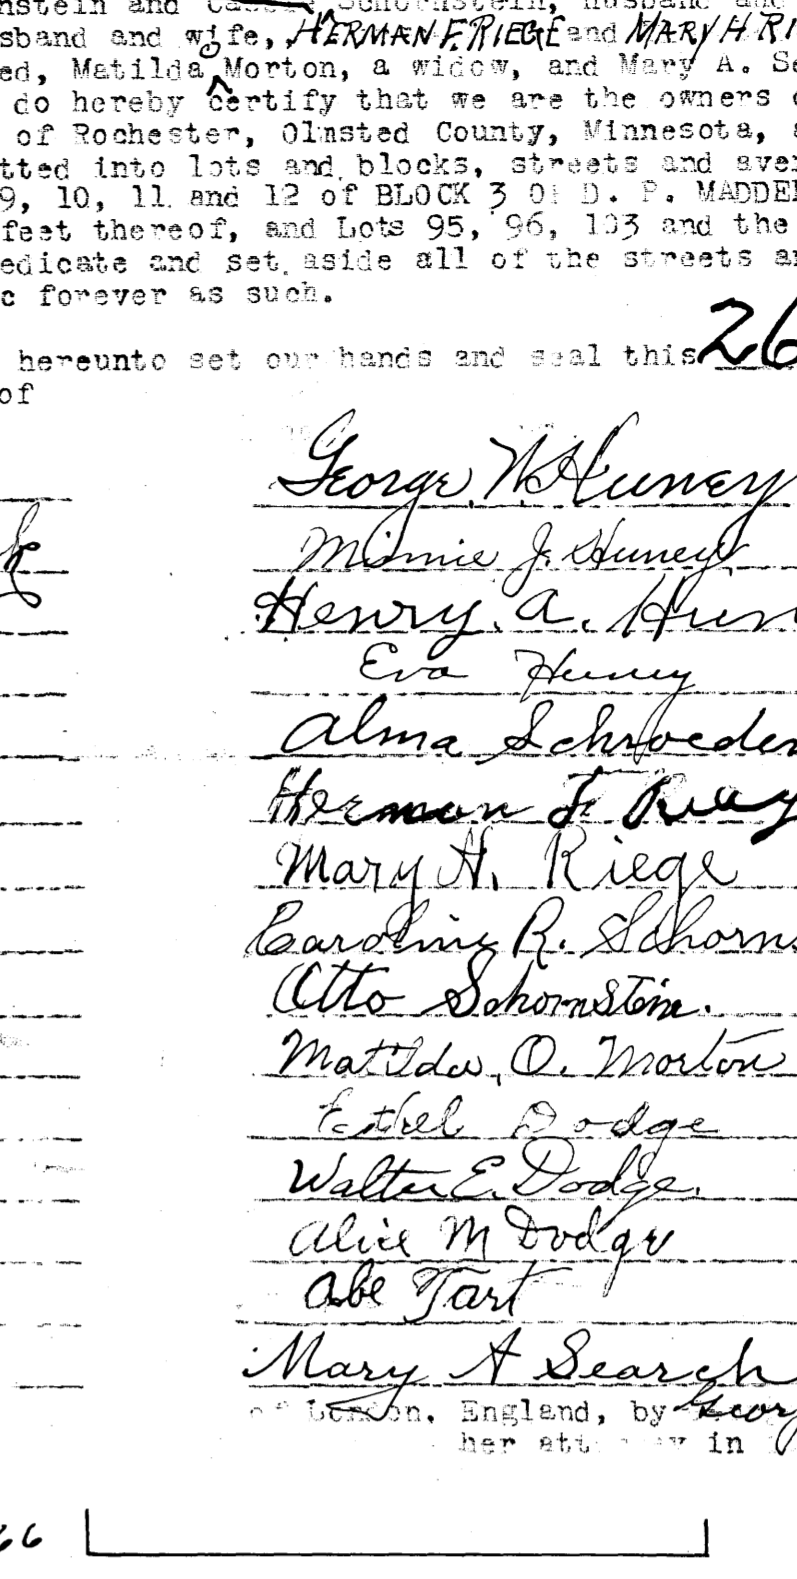 nstein and Schornstein, husband and
sband and wife, HERMAN F. RIEGE and MARY H RI
ed, Matilda O Morton, a widow, and Mary A. Se
do hereby certify that we are the owners o
of Rochester, Olmsted County, Minnesota, a
tted into lots and blocks, streets and aven
9, 10, 11 and 12 of BLOCK 3 OF D. P. MADDEN
feet thereof, and Lots 95, 96, 103 and the
edicate and set aside all of the streets an
c forever as such.
hereunto set our hands and seal this 26
of
George W. Huney
Minnie J. Huney
Henry. A. Hun
Eva Huney
Alma Schroeder
Herman F. Riege
Mary H. Riege
Caroline R. Schorns
Otto Schornstein.
Matilda O. Morton
Ethel Dodge
Walter E. Dodge.
Alice M Dodge
Abe Tart
Mary A Search
of London, England, by Georg
her attorney in
66